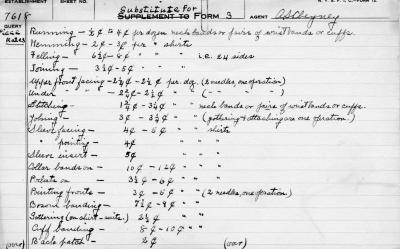 ESTABLISHMENT SHEET NO. Substitute for
7618 SUPPLEMENT TO FORM 3 AGENT
QUERY
Running - ½¢ to 4¢ per dozen neck bands or pairs of wristbands or cuffs.
Hemming - 2¢ - 3¢ per " shirts
Felling - 6½¢ - 8¢ " " " i.e. 24 sides
Joining - 3½¢ - 5¢ " " "
Upper front facing - 2½¢ - 2½¢ per doz. (2 needles, one operation)
Under " " - 2½¢ - 2½¢ " " ( - - " - )
Stitching - 1¼¢ - 3¼¢ " neck bands or pairs of wristbands or cuffs.
Yoking - 3¢ - 3½¢ " " (gathering & attaching are one operation.)
Sleeve facing - 4¢ - 5¢ " shirts
" pointing - 4¢ " "
Sleeve insert - 5¢ " "
Collar bands on - 10¢ - 12¢ " "
Plaits on - 3½¢ - 6¢ " "
Pointing fronts - 3¢ - 5¢ " " (2 needles, one operation)
Bosom banding - 7½¢ - 9¢ " "
Gathering (on shirt-waists.) 2½¢ " "
Cuff banding - 8¢ - 10¢ " "
(over) Back patch - 2¢ " (over)